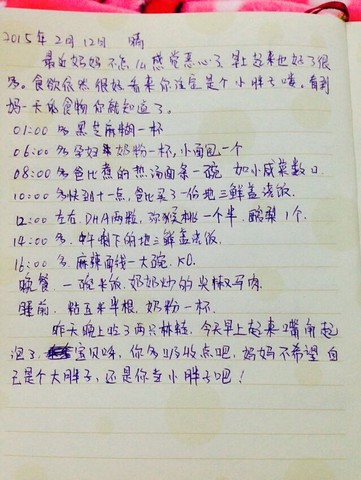 2015年2月12日 晴
最近妈妈不怎么感觉恶心了,早上起来也好了很
多。食欲依然很好,看来你注定是个小胖子喽。看到
妈一天的食物你就知道了。
01:00 多 黑芝麻糊一杯
06:00 多孕妇奶粉一杯,小面包一个
08:00 多爸比煮的热汤面条一碗 加小咸菜数口
10:00 多快到十一点,爸比买了一份地三鲜盖浇饭.
12:00 左右.DHA两粒,弥猴桃一个半.酸梨1个.
14:00 多.中午剩下的地三鲜盖浇饭.
16:00 多.麻辣面线一大碗,KO.
晚餐 一碗米饭,奶奶炒的尖椒豆肉.
睡前.粘玉米半根.奶粉一杯.
昨天晚上吃了两只林蛙,今天早上起来嘴角起
泡了,宝贝呀,你多吸收点吧,妈妈不希望自
己是个大胖子,还是你当小胖子吧!